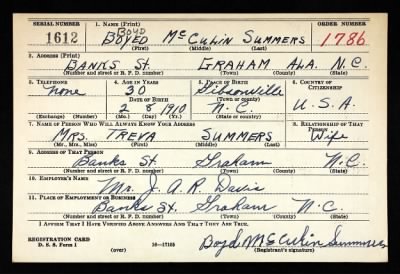 SERIAL NUMBER 1. NAME (Print) ORDER NUMBER
BOYD
1612 BOYED McCULIN SUMMERS 1786
(First) (Middle) (Last)
2. ADDRESS (Print)
BANKS St. GRAHAM ALA. N.C.
(Number and street or R. F. D. number) (Town) (County) (State)
3. TELEPHONE 4. AGE IN YEARS 5. PLACE OF BIRTH 6. COUNTRY OF CITIZENSHIP
none 30 Gibsonville
DATE OF BIRTH (Town or county)
2 8 1910 N.C. U.S.A.
(Exchange) (Number) (Mo.) (Day) (Yr.) (State or country)
7. NAME OF PERSON WHO WILL ALWAYS KNOW YOUR ADDRESS 8. RELATIONSHIP OF THAT PERSON
MRS. TREVA SUMMERS Wife
(Mr., Mrs., Miss) (First) (Middle) (Last)
9. ADDRESS OF THAT PERSON
Banks St. Graham N.C.
(Number and street or R. F. D. number) (Town) (County) (State)
10. EMPLOYER'S NAME
Mr. J. A. R. Davis
11. PLACE OF EMPLOYMENT OR BUSINESS
Banks St. Graham N.C.
(Number and street or R. F. D. number) (Town) (County) (State)
I AFFIRM THAT I HAVE VERIFIED ABOVE ANSWERS AND THAT THEY ARE TRUE.
REGISTRATION CARD
D. S. S. Form 1 (over) 16—17105 Boyd McCulin Summers
(Registrant's signature)